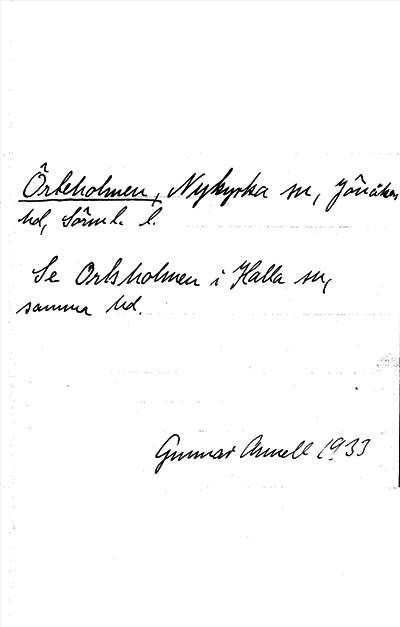 Örbeholmen, Nykyrka sn, Jönåkers
hd, Sörml. l.
Se Orksholmen i Halla sn,
samma hd.
Gunnar Arnell 1933